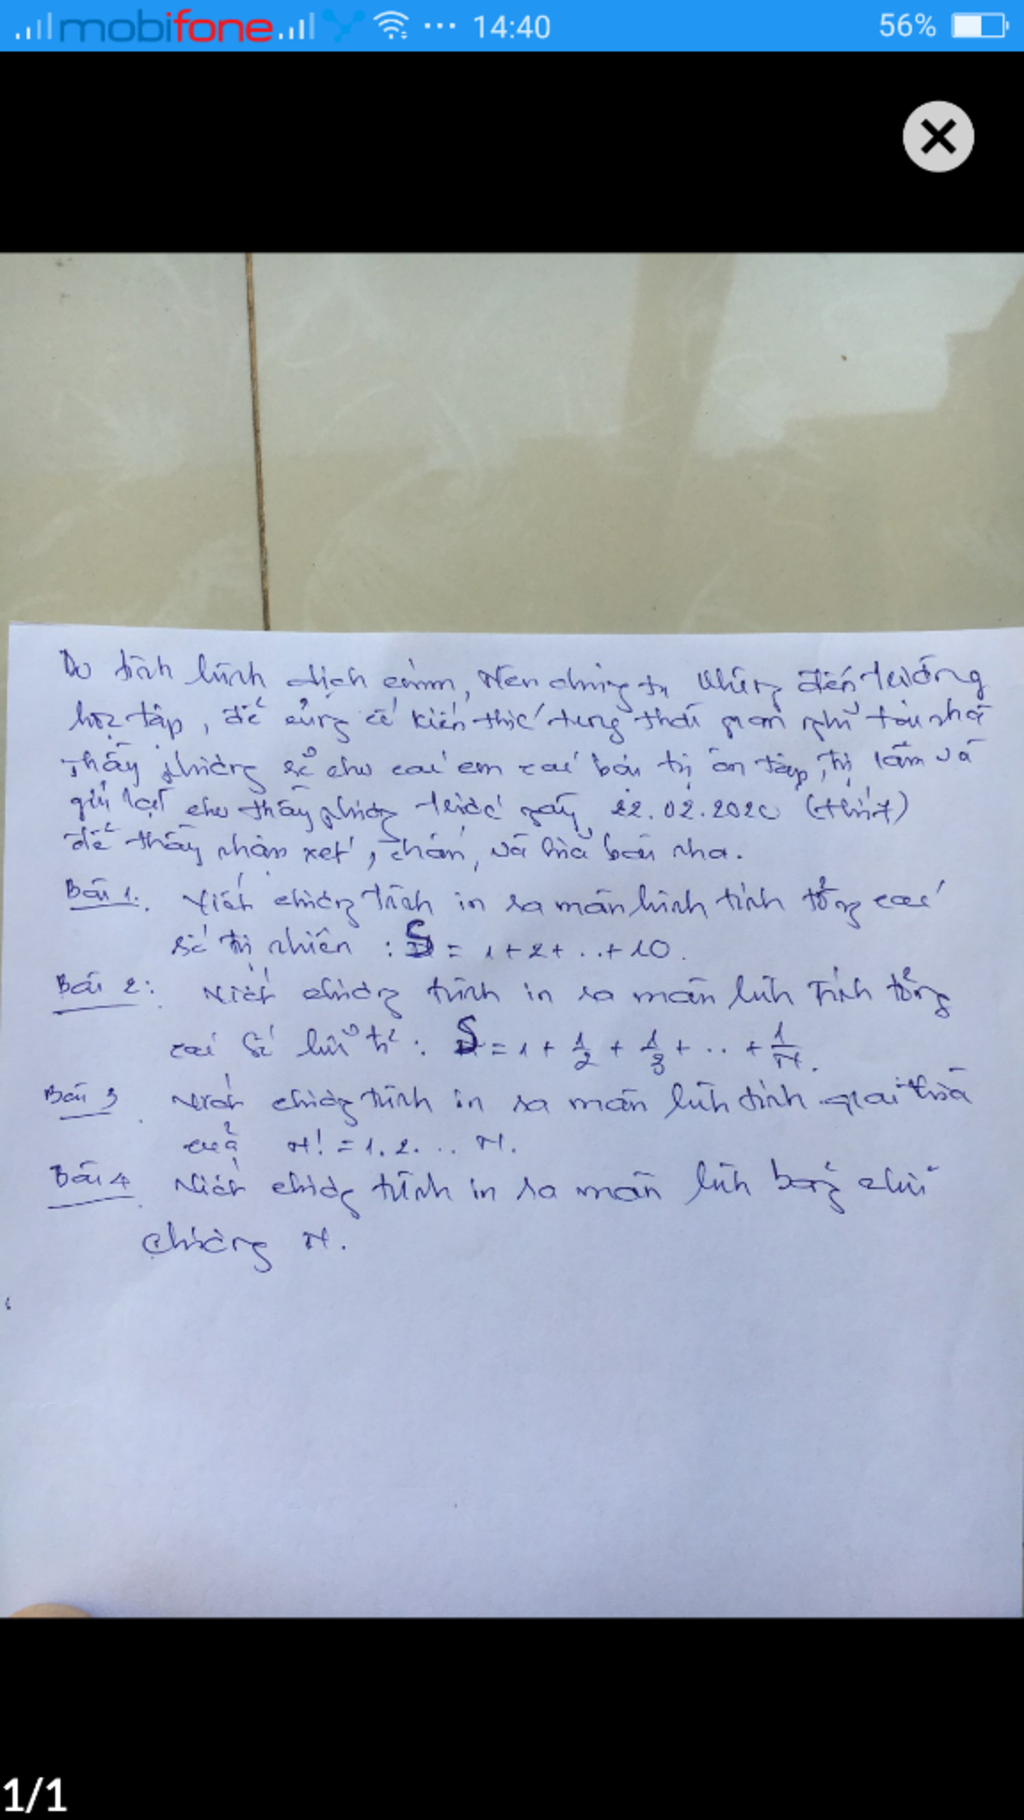 mobifone ... 14:40 56%
Do tình hình dịch cúm, Nên chúng ta không đến trường
học tập, để củng cố kiến thức trong thời gian nghỉ tại nhà
Thầy phương sẽ cho các em các bài tự ôn tập, tự làm và
gửi lại cho thầy phương trước ngày 22.02.2020 (thứ 7)
để thầy nhận xét, chấm, và sửa bài nha.
Bài 1. Viết chương trình in ra màn hình tính tổng các
số tự nhiên : S = 1+2+ ..+10.
Bài 2: Viết chương trình in ra màn hình Tính tổng
các số hữu tỉ : S = 1 + 1/2 + 1/3 + .. + 1/N.
Bài 3 Viết chương trình in ra màn hình tính giai thừa
của N! = 1.2... N.
Bài 4 Viết chương trình in ra màn hình bảng cửu
chương N.
1/1